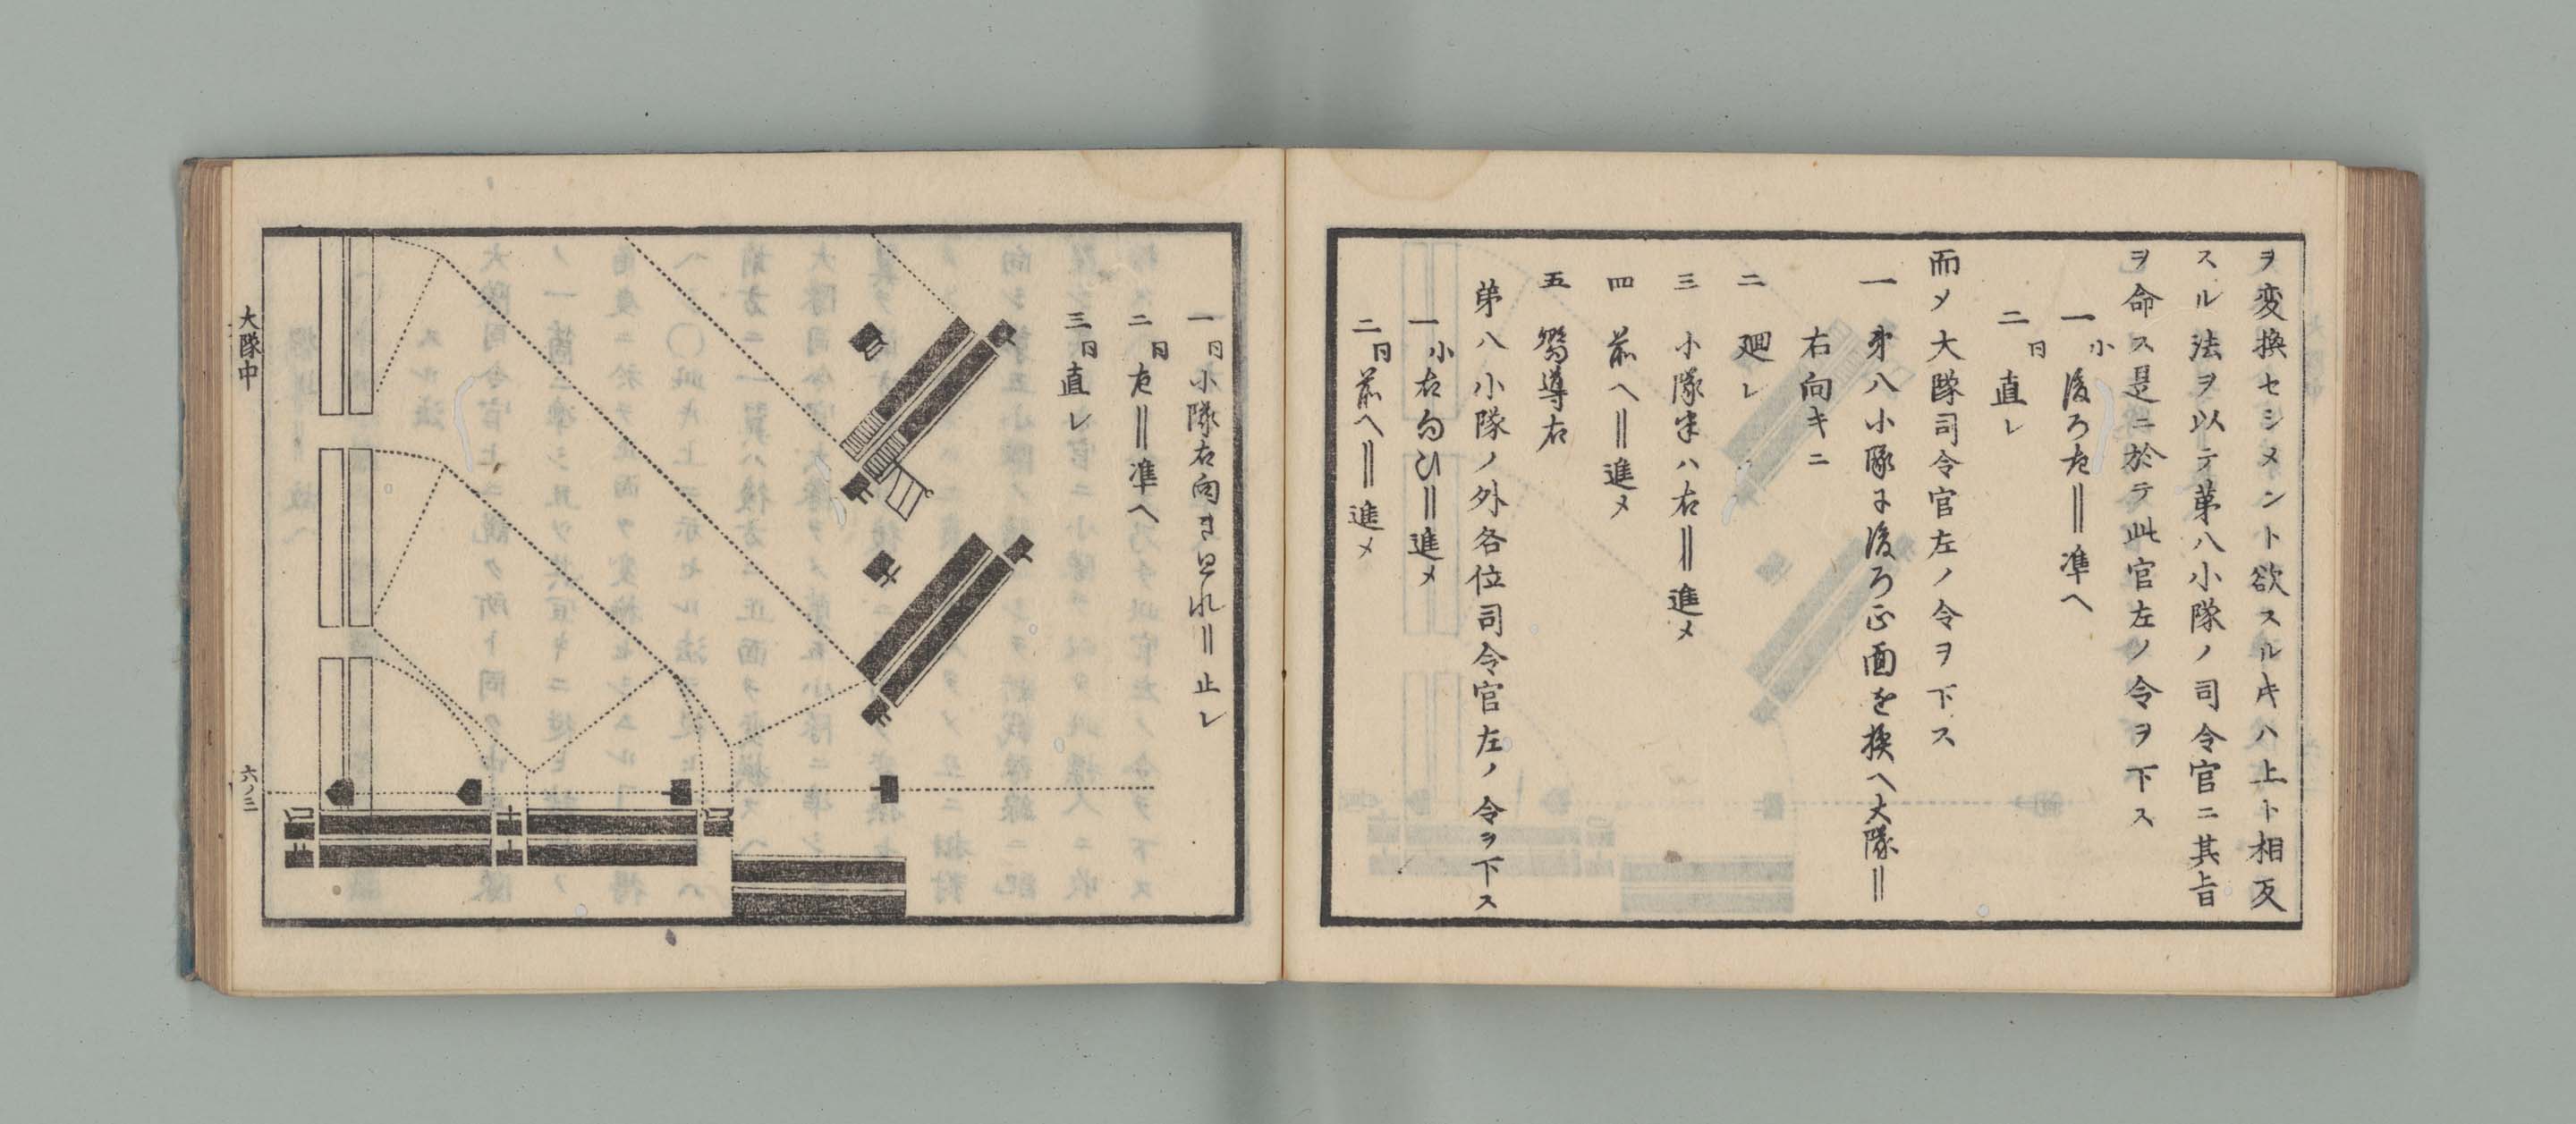 ヲ変換セシメント欲スルキハ上ト相反
スル法ヲ以テ第八小隊ノ司令官ニ其旨
ヲ命ス是ニ於テ此官左ノ令ヲ下ス
一小後ろ左‖準へ
二日直レ
而メ大隊司令官左ノ令ヲ下ス
一第八小隊に後ろ正面を換へ大隊‖
右向キニ
二廻レ
三小隊半ハ右‖進メ
四前へ‖進メ
五嚮導右
第八小隊ノ外各位司令官左ノ令ヲ下ス
一小右勾ひ‖進メ
二日前へ‖進メ
一日小隊右向き止れ‖止レ
二日左‖準へ
三日直レ
大隊中
六ノ三